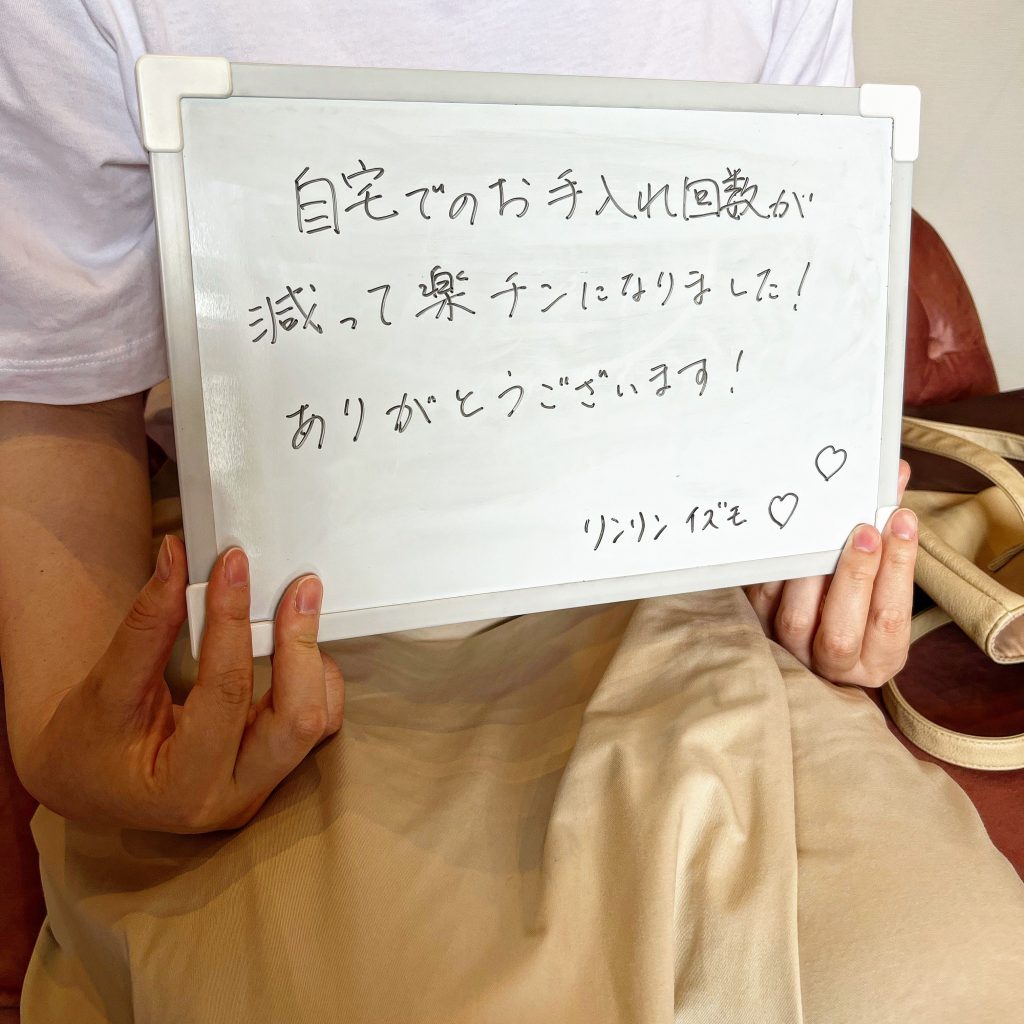 自宅でのお手入れ回数が
減って楽チンになりました!
ありがとうございます!
♡
リンリン イズモ ♡